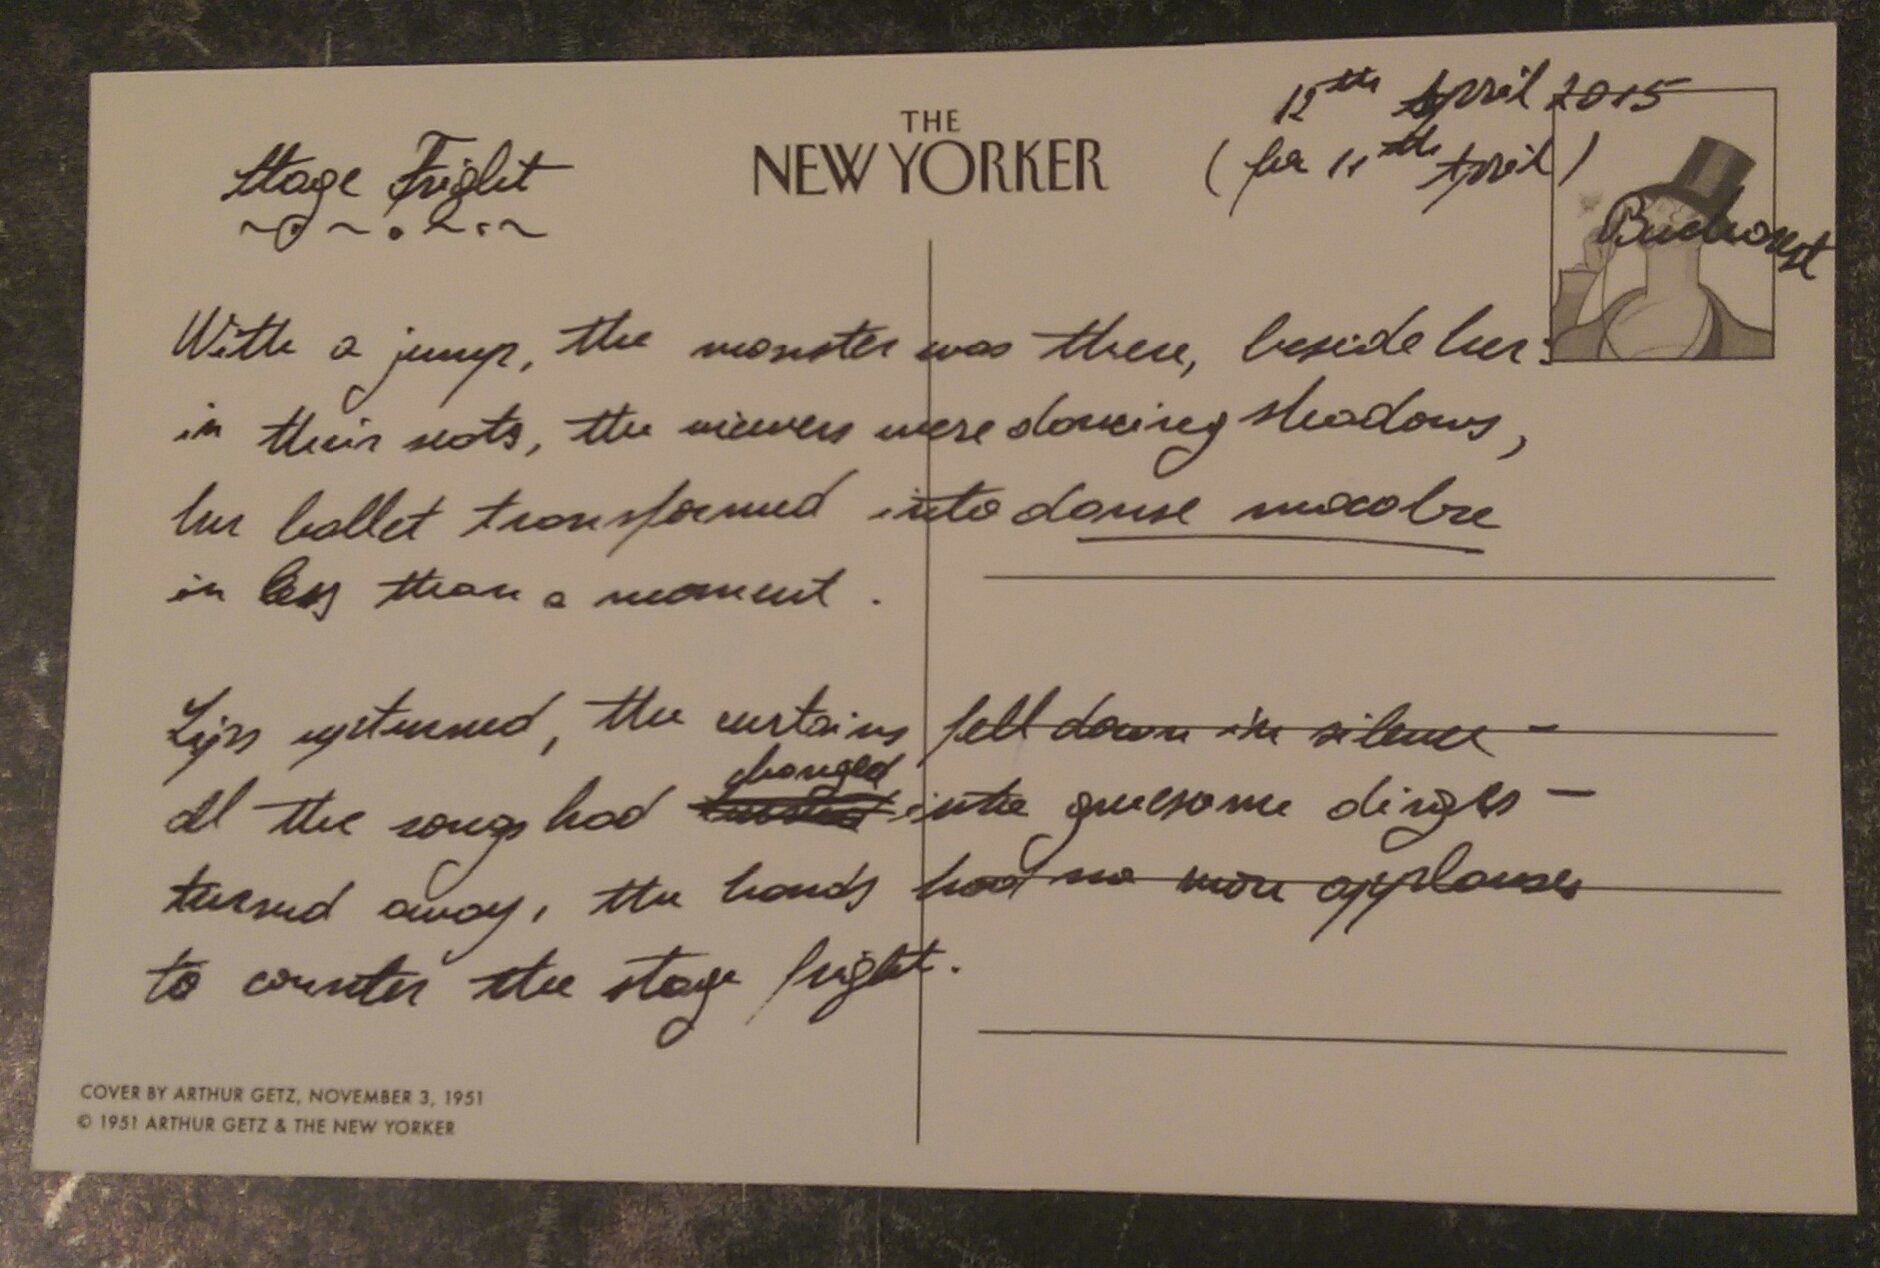 THE
NEW YORKER
12th April 2015
(for 11th April)
Budapest
Stage Fright
With a jump, the monster was there, beside her:
in their seats, the viewers were dancing shadows,
her ballet transformed into danse macabre
in less than a moment.
Lips upturned, the curtains fell down in silence –
all the songs had changed into gruesome dirges –
turned away, the hands had no more applauses
to counter the stage fright.
COVER BY ARTHUR GETZ, NOVEMBER 3, 1951
© 1951 ARTHUR GETZ & THE NEW YORKER